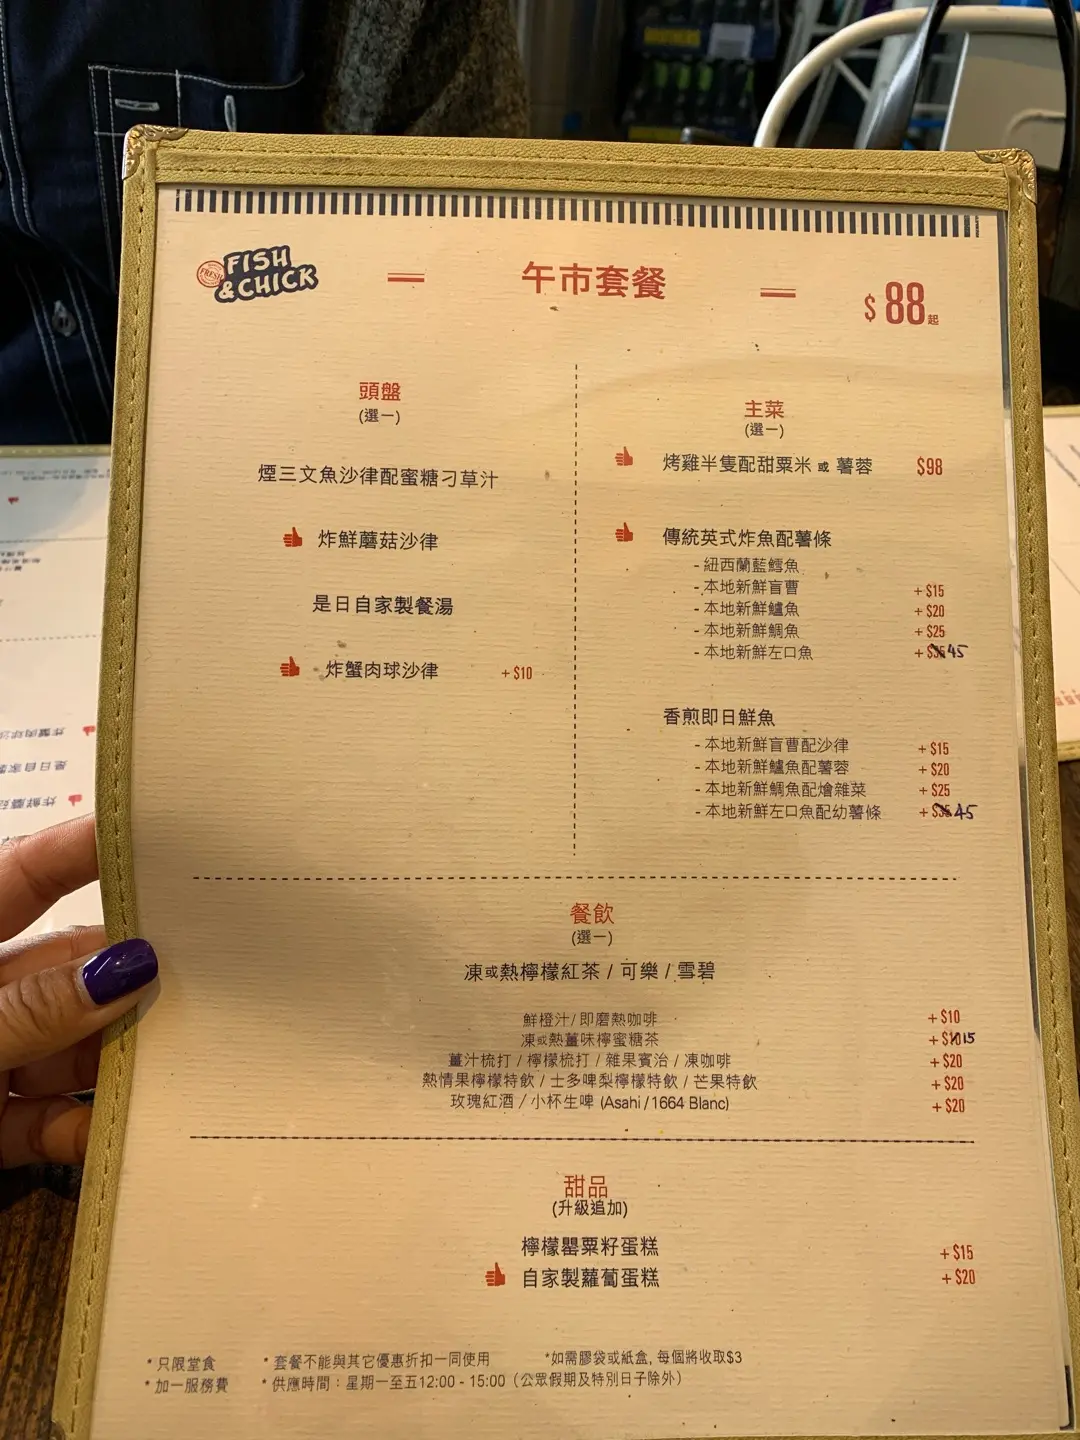 FRESH
FISH
& CHICK
午市套餐
$88起
頭盤
(選一)
煙三文魚沙律配蜜糖刁草汁
炸鮮蘑菇沙律
是日自家製餐湯
炸蟹肉球沙律 +$10
主菜
(選一)
烤雞半隻配甜粟米 或 薯蓉 $98
傳統英式炸魚配薯條
- 紐西蘭藍鱈魚
- 本地新鮮盲曹 +$15
- 本地新鮮鱸魚 +$20
- 本地新鮮鯛魚 +$25
- 本地新鮮左口魚 +$35 45
香煎即日鮮魚
- 本地新鮮盲曹配沙律 +$15
- 本地新鮮鱸魚配薯蓉 +$20
- 本地新鮮鯛魚配燴雜菜 +$25
- 本地新鮮左口魚配幼薯條 +$35 45
餐飲
(選一)
凍或熱檸檬紅茶 / 可樂 / 雪碧
鮮橙汁 / 即磨熱咖啡 +$10
凍或熱薑味檸蜜糖茶 +$10 15
薑汁梳打 / 檸檬梳打 / 雜果賓治 / 凍咖啡 +$20
熱情果檸檬特飲 / 士多啤梨檸檬特飲 / 芒果特飲 +$20
玫瑰紅酒 / 小杯生啤 (Asahi / 1664 Blanc) +$20
甜品
(升級追加)
檸檬罌粟籽蛋糕 +$15
自家製蘿蔔蛋糕 +$20
*只限堂食 *套餐不能與其它優惠折扣一同使用 *如需膠袋或紙盒, 每個將收取$3
*加一服務費 *供應時間：星期一至五12:00 - 15:00（公眾假期及特別日子除外）